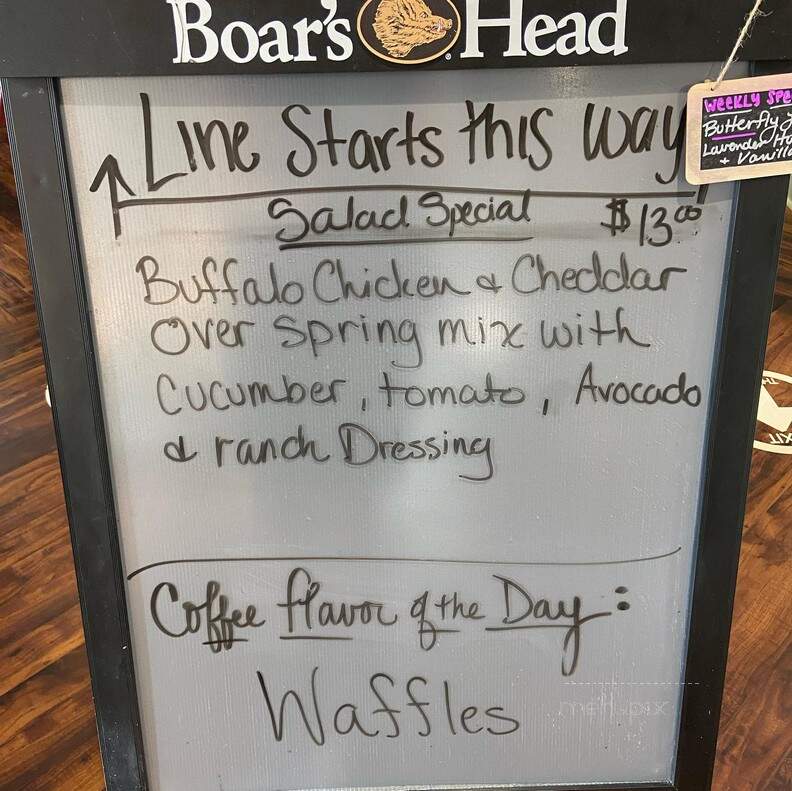 Boar's Head
Line Starts this way
Salad Special $13.00
Buffalo Chicken & Cheddar
Over Spring mix with
Cucumber, tomato, Avocado
& ranch Dressing
Coffee flavor of the Day:
Waffles
WEEKLY
Butterfly
Lavender
+